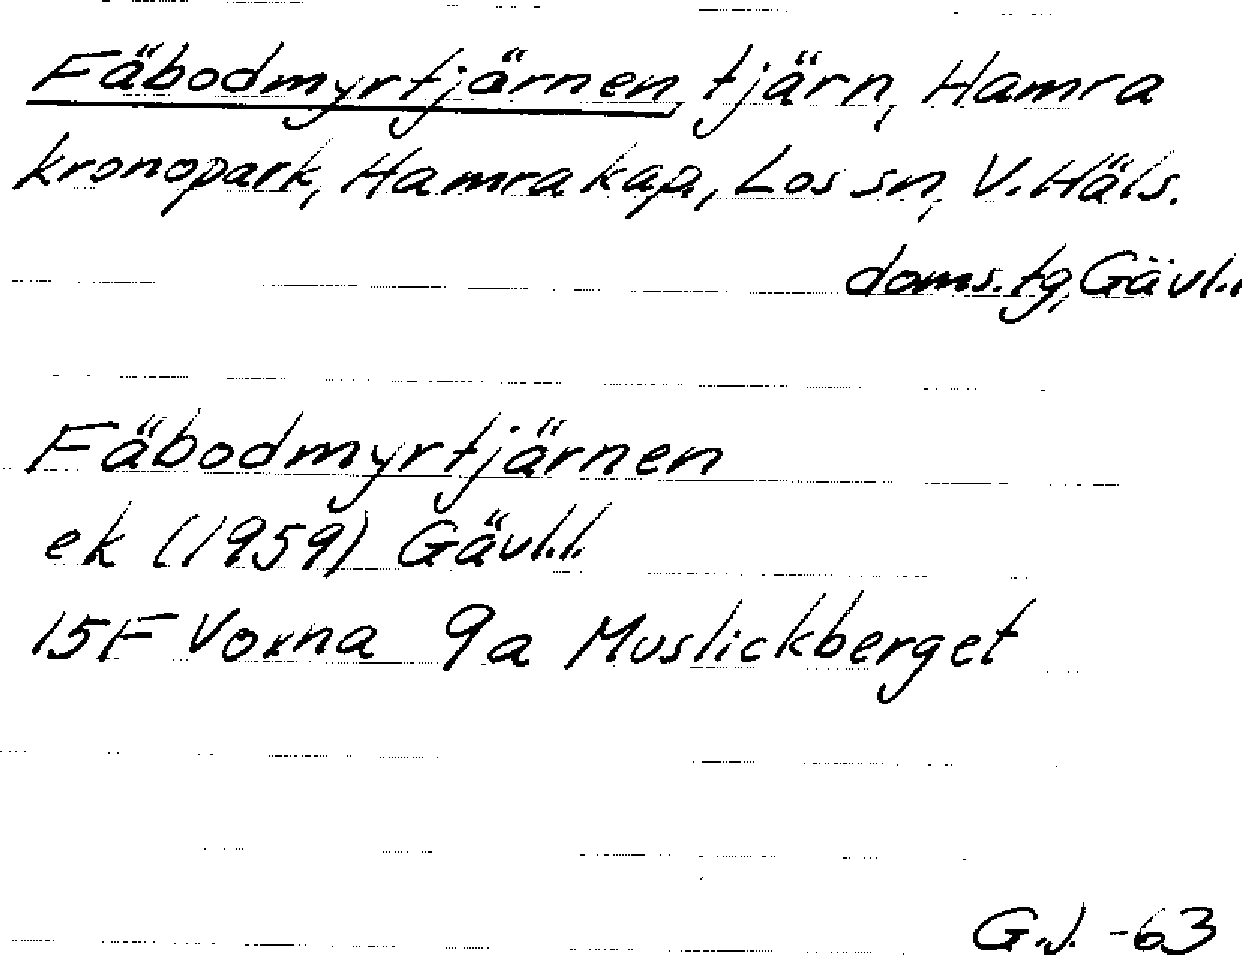 Fäbodmyrtjärnen, tjärn, Hamra
kronopark, Hamra kap, Los sn, V. Häls.
doms.tg, Gävl.l
Fäbodmyrtjärnen
ek (1959) Gävl.l.
15F Voxna 9a Muslickberget
G.J. -63